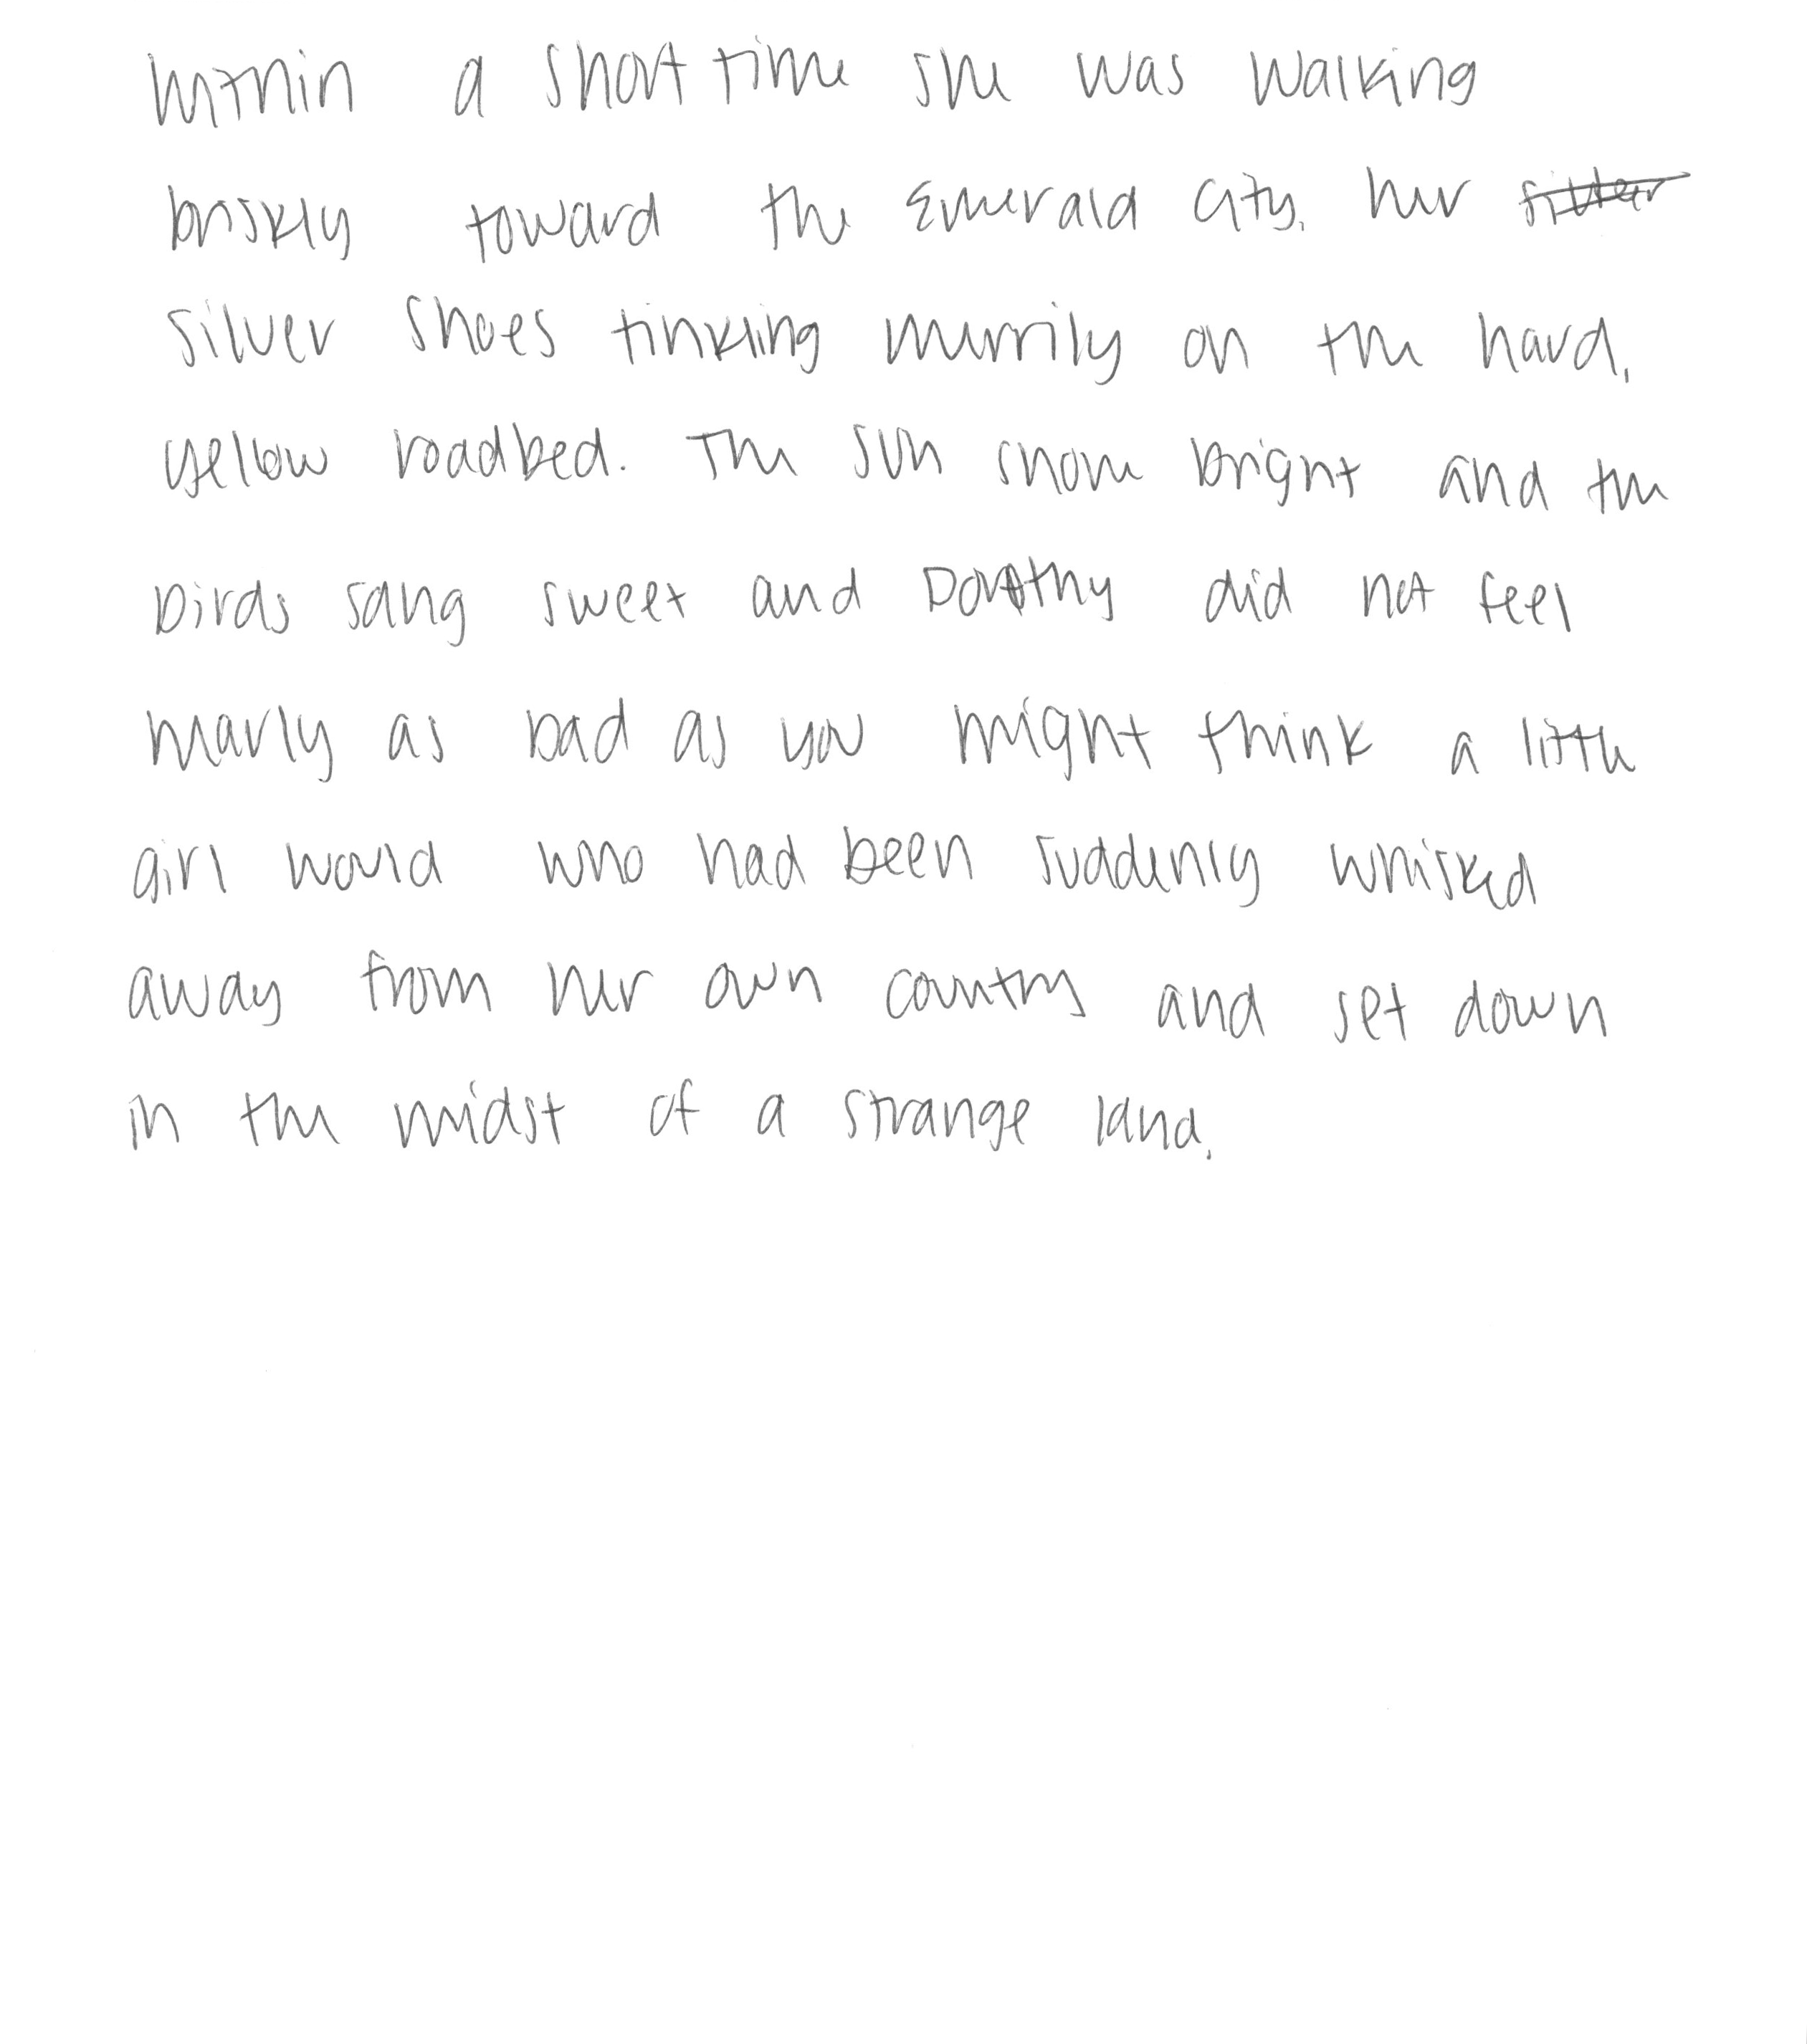 Within a short time she was walking
briskly toward the Emerald City, her
silver shoes tinkling merrily on the hard,
yellow roadbed. The sun shone bright and the
birds sang sweet and Dorothy did not feel
nearly as bad as you might think a little
girl would who had been suddenly whisked
away from her own country and set down
in the midst of a strange land.